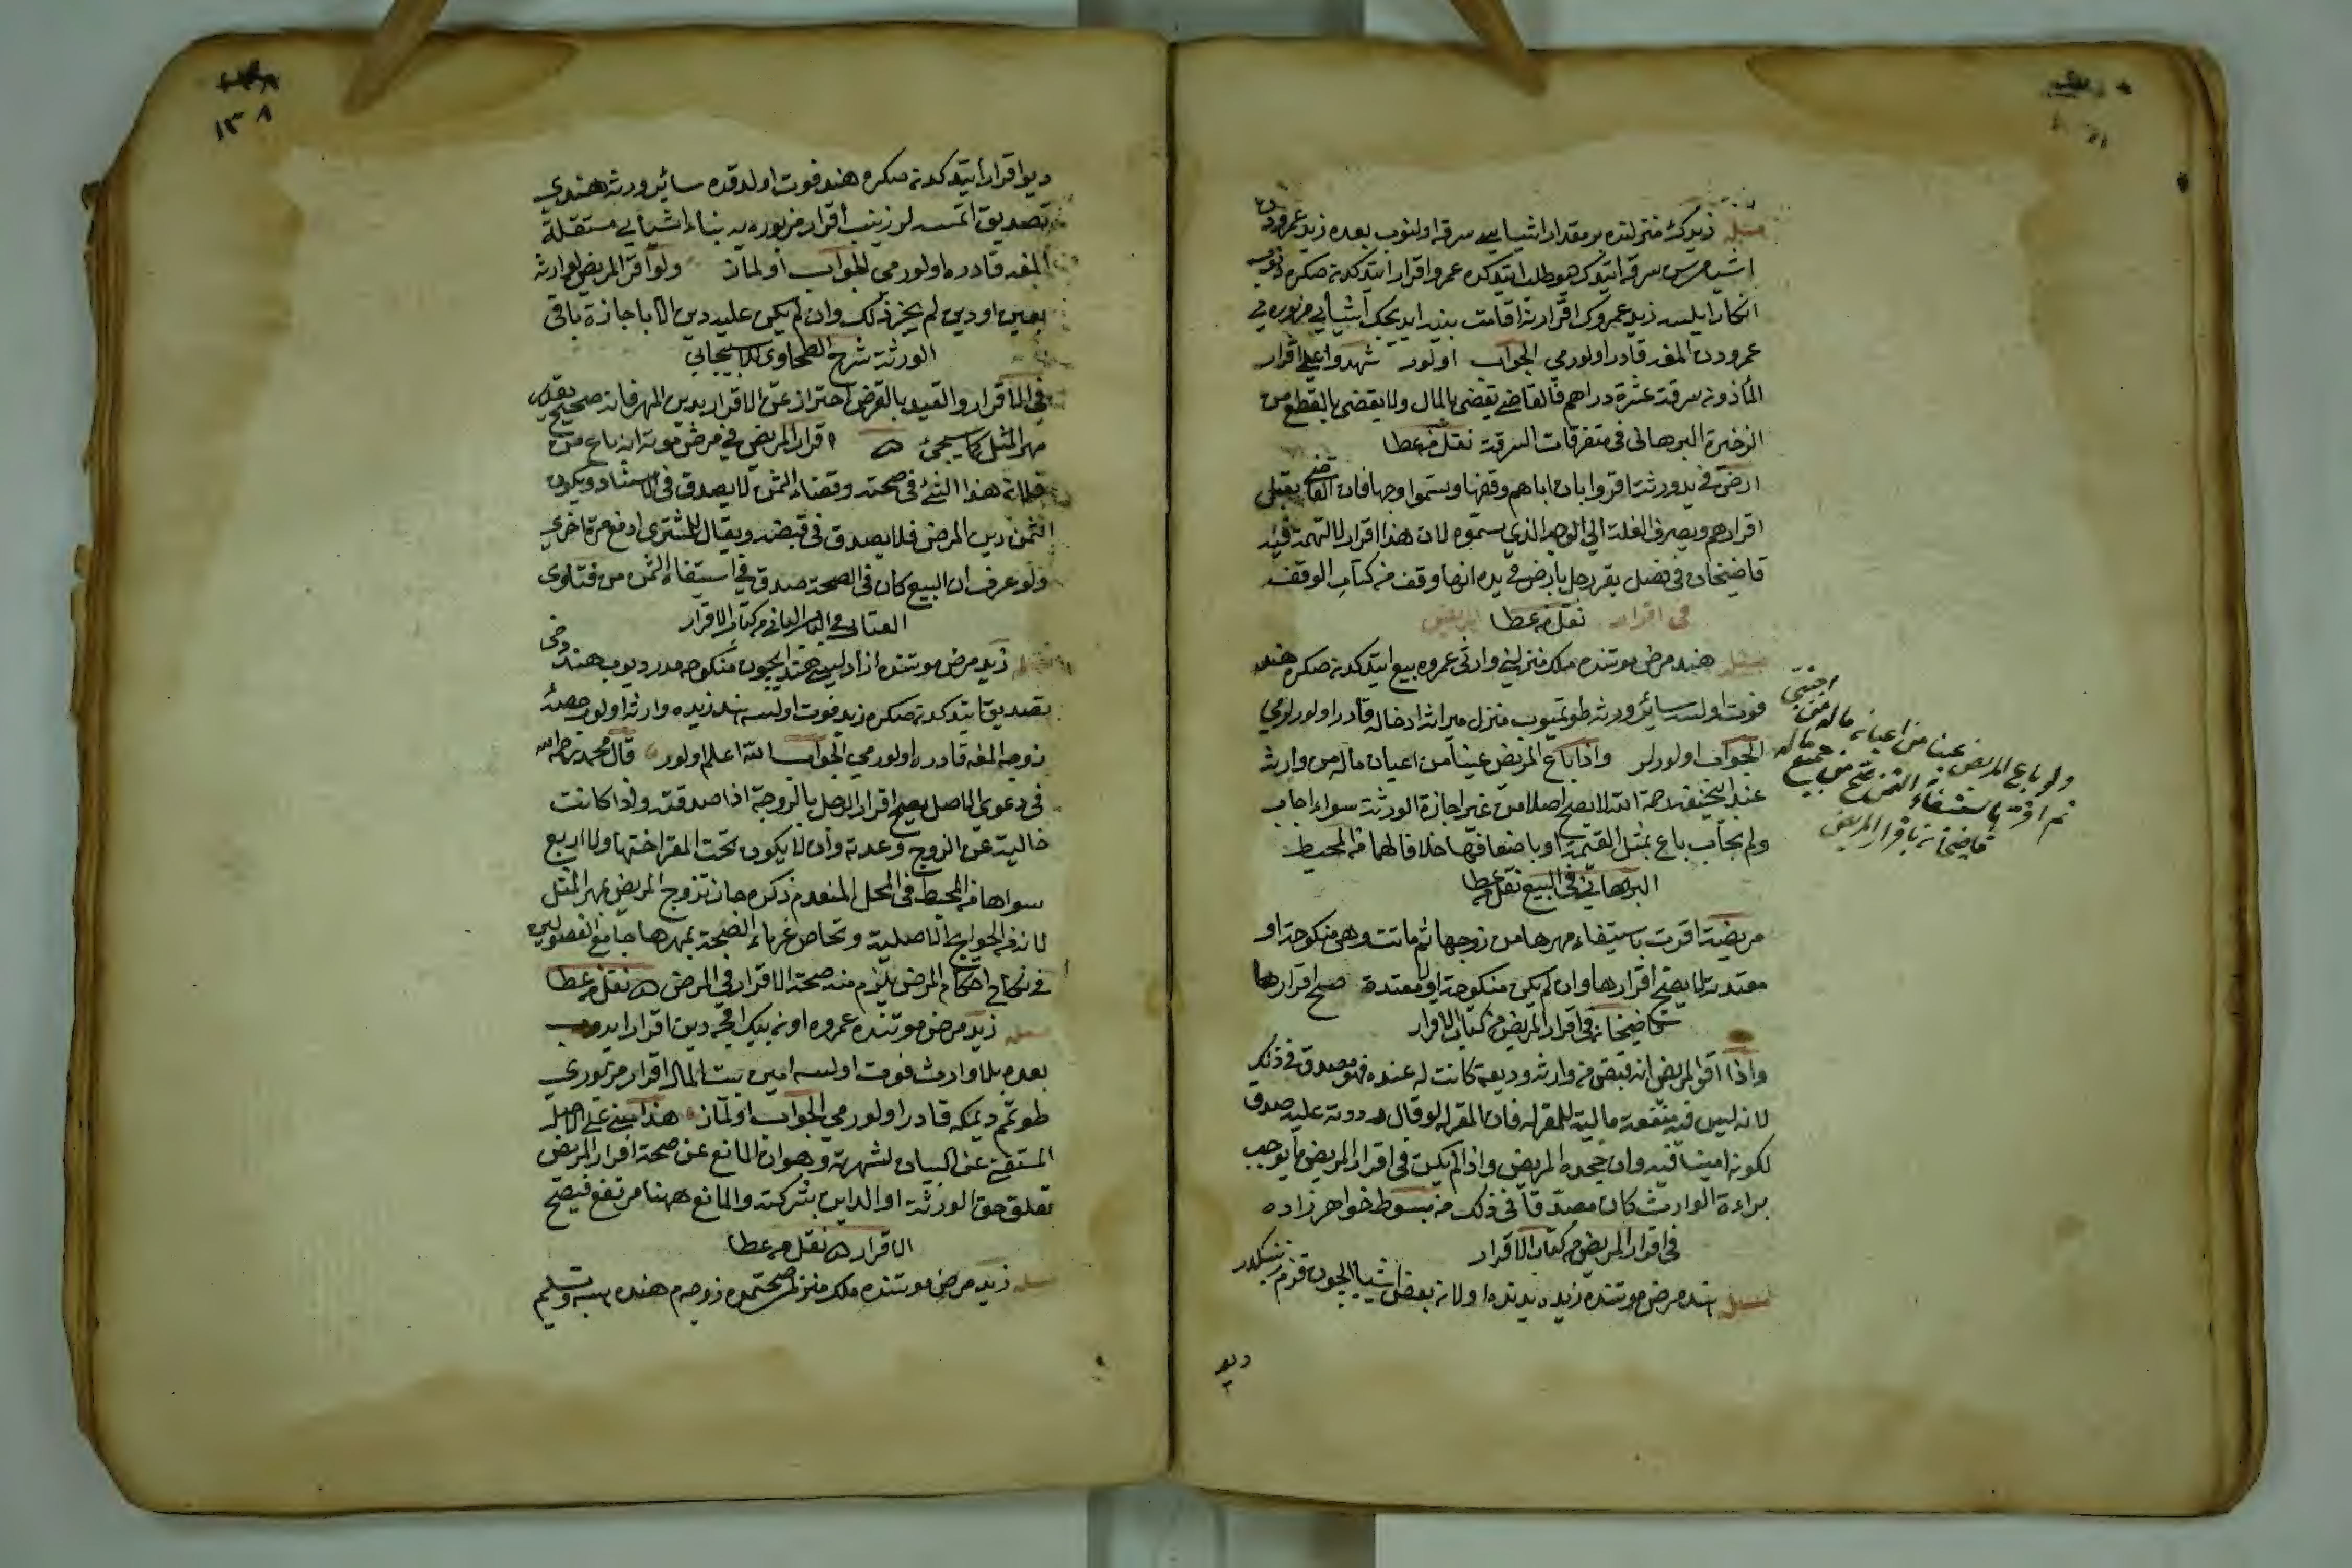 مسئله زيدك منزلنده بر مقدار اشياسي سرقه اولنوب بعده زيد عمرودن
اشيامي سن سرقه ايتدك ديو طلب ايتدكده عمرو اقرار ايتدكدن صكره
انكار ايلسه زيد عمروك اقرارينه اقامت بينه ايديجك اشياي مزبوره يي
عمرودن المغه قادر اولورمي الجواب اولور شهدوا على اقرار
المأذون بسرقة عشرة دراهم فالقاضي يقضى بالمال ولا يقضى بالقطع من
الذخيرة البرهاني في متفرقات السرقة نقل من عطا
ارض في يد ورثت اقروا بان اباهم وقفها ويسموا وجها فان القاضي يقبل
اقرارهم ويصرف الغلة الى الوجه الذي يسموه لان هذا اقرار لا تهمة فيه
قاضيخان في فصل يقر رجل بارض في يده انها وقف من كتاب الوقف
في اقرار نقل من عطا المريض
مسئله هند مرض موتنده ملك منزلني وارثي عمروه بيع ايتدكدن صكره هند
فوت اولسه سائر ورثه طوتميوب منزل ميراثه ادخاله قادر اولورلرمي
الجواب اولورلر واذا باع المريض عينا من اعيان ماله من وارثه
عند ابي حنيفة رحمه الله لا يصح اصلا من غير اجازة الورثة سواء حاب
ولم يحاب باع بمثل القيمة او باضعافها خلافا لهما من المحيط
البرهاني في البيع نقل من عطا
مريضة اقرت باستيفاء مهرها من زوجها ثم ماتت وهي منكوحة او
معتدته لا يصح اقرارها وان لم يكن منكوحة او لا معتدة صح اقرارها
قاضيخان في اقرار المريض من كتاب الاقرار
واذا اقر المريض انه قبض من وارثه وديعة كانت له عنده فهو مصدق في ذلك
لانه ليس فيه منفعة مالية للمقر له فان المقر له لو قال رددته عليه صدق
لكونه امينا فيه وان جحده المريض واذا لم يكن في اقرار المريض ما يوجب
براءة الوارث كان مصدقا في ذلك من مبسوط خواهر زاده
في اقرار المريض من كتاب الاقرار
مسئله هند مرض موتنده زيده يدنده اولان بعض اشيا ايچون قزم زينبكدر
ديو
ولو باع المريض عينا من اعيان ماله من اجنبي
ثم اقر باستيفاء الثمن صح من جميع ماله
قاضيخان باقرار المريض
١٣٨
ديو اقرار ايتدكدن صكره هند فوت اولدقده سائر ورثه هندي
تصديق اتمسه لر زينب اقرار مزبوره يه بناء اشيايي مستقلة
المغه قادره اولورمي الجواب اولماز ولو اقر المريض لوارثه
بعين او دين لم يجز ذلك وان لم يكن عليه دين الا باجازة باقي
الورثة شرح الطحاوي للاسبيجابي
في الاقرار والقيد بالقرض احتراز عن الاقرار بدين المهر فانه صحيح بقدر
مهر المثل كما سيجئ اقرار المريض في مرض موته انه باع من
فلان هذا الشئ في صحته وقضاء الثمن لا يصدق في الاستناد ويكون
الثمن دين المرض فلا يصدق في قبضه ويقال للمشتري ادفع مرة اخرى
ولو عرف ان البيع كان في الصحة صدق في استيفاء الثمن من فتاوى
العتابي في الباب الثاني من كتاب الاقرار
مسئله زيد مرض موتنده ازادلسي هند ايچون منكوحه مدر ديوب هند دخى
تصديق ايتدكدن صكره زيد فوت اولسه هند زيده وارثه اولوب حصهٔ
زوجه المغه قادره اولورمي الجواب الله اعلم اولور قال محمد رحمه الله
في دعوى الاصل يصح اقرار الرجل بالزوجة اذا صدقته واذا كانت
خالية عن الزوج وعدته وان لا يكون تحت المقر اختها ولا اربع
سواها من المحيط في المحل المتقدم ذكره جاز تزوج المريض بمهر المثل
لانه من الحوايج الاصلية وتحاص غرماء الصحة بمهرها جامع الفصولين
في نكاح احكام المرض يلزم منه صحة الاقرار في المرض نقل من عطا
مسئله زيد مرض موتنده عمروه اون بيك اقچه دين اقرار ايدوب
بعده بلا وارث فوت اولسه امين بيت المال اقرار مزبوري
طوتم ديمكه قادر اولورمي الجواب اولماز هذا مبني على اصل
المستغني عن البيان لشهرته وهو ان المانع عن صحة اقرار المريض
تعلق حق الورثة او الداين بتركته والمانع ههنا مرتفع فيصح
الاقرار نقل من عطا
مسئله زيد مرض موتنده ملك منزلمي صحتمده زوجه م هنده هبه وتسليم